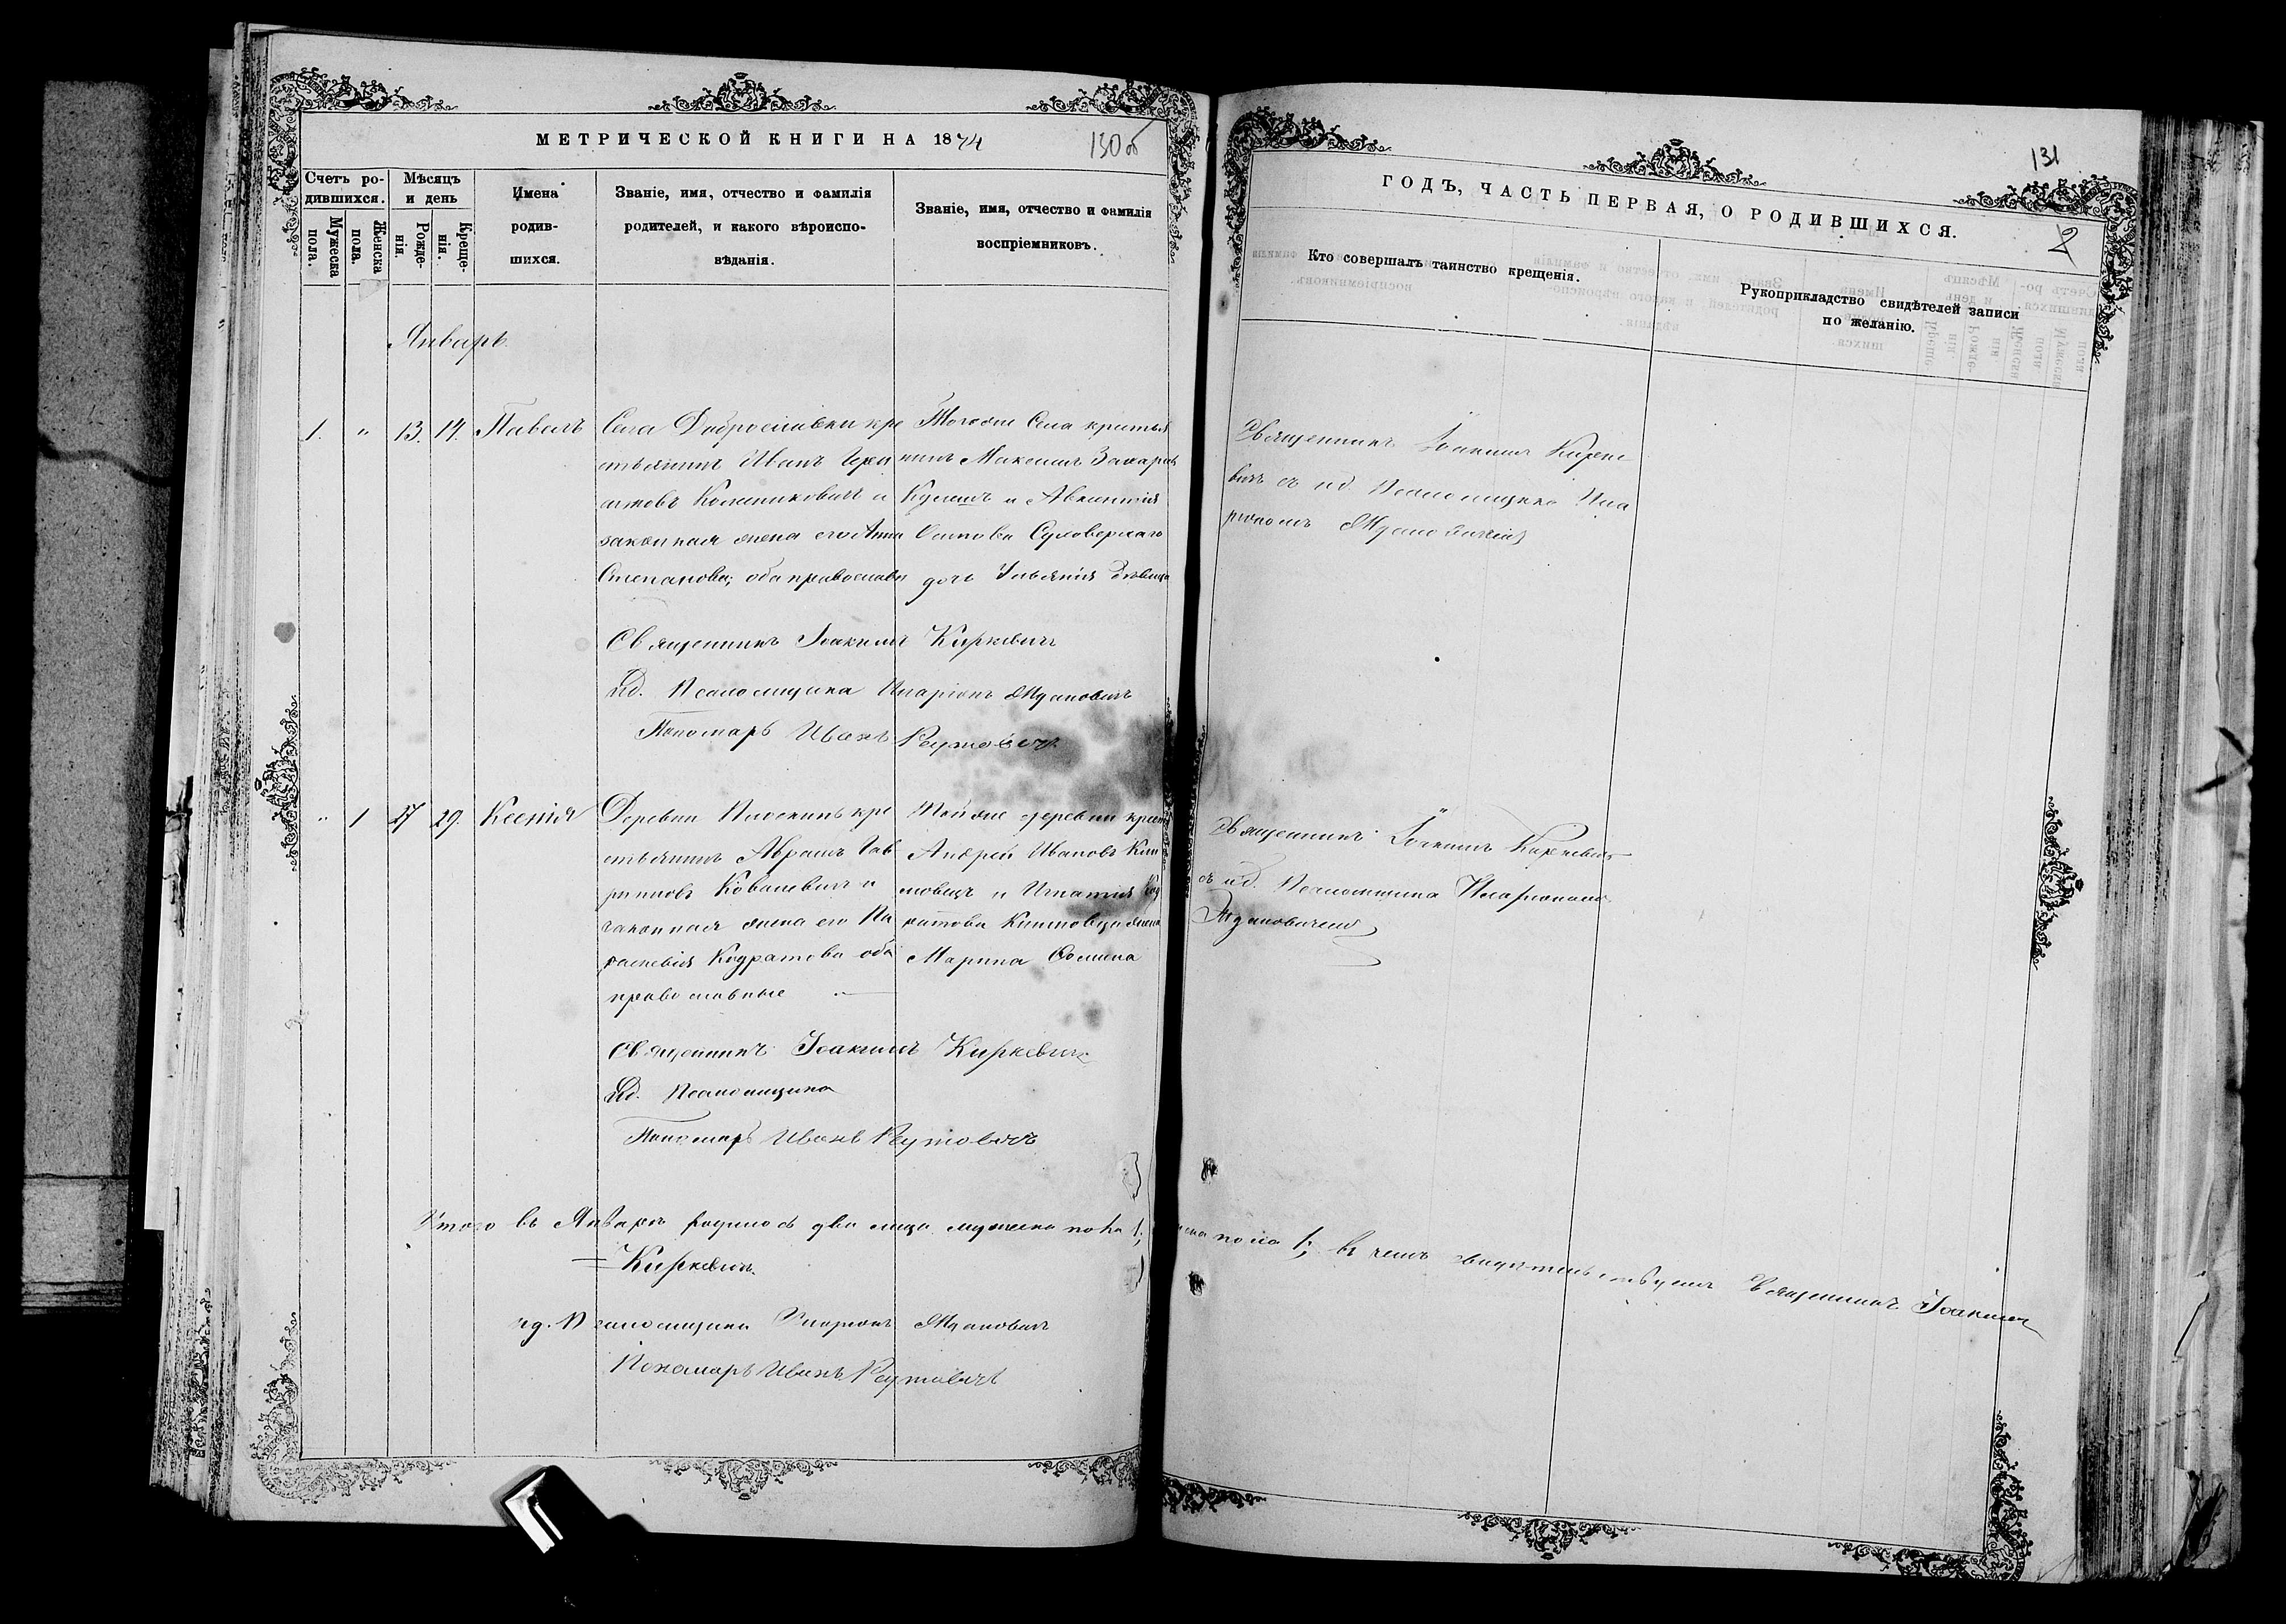 МЕТРИЧЕСКОЙ КНИГИ НА 1874
130 об
Счетъ ро-
дившихся.
Мужеска
пола.
Женска
пола.
Мѣсяцъ
и день
Рожде-
нія.
Креще-
нія.
Имена
родив-
шихся.
Званіе, имя, отчество и фамилія
родителей, и какого вѣроиспо-
вѣданія.
Званіе, имя, отчество и фамилія
воспріемниковъ.
Январь
1. " 13. 14. Павелъ
Села Доброславки кре
стьянинъ Иванъ
законная жена его Анна
Степанова; оба православн
Тогоже Села крестья
нинъ Максимъ Захаровъ
Кулешъ и
дочь Ульянія дѣвица
Священникъ Іоакимъ Киркевичъ
И. д. Псаломщика Иларіонъ Ждановичъ
Пономарь Иванъ Реутовичъ
" 1 27 29. Ксенія
Деревни кре
стьянинъ Абрамъ Гав
риловъ Ковалевичъ и
законная жена его Па
раскевія Кодратова оба
православные
Тойже деревни крест
Андрей Ивановъ Кли
мовецъ и Игнатія Код
ратова Климовца жена
Марина Ѳомина
Священникъ Іоакимъ Киркевичъ
И. д. Псаломщика
Пономарь Иванъ Реутовичъ
Итого въ Январѣ родилось два лица мужска пола 1;
Киркевичъ.
и. д. Псаломщика Иларіонъ Ждановичъ
Пономарь Иванъ Реутовичъ
131
ГОДЪ, ЧАСТЬ ПЕРВАЯ, О РОДИВШИХСЯ.
2
Кто совершалъ таинство крещенія.
Рукоприкладство свидѣтелей записи
по желанію.
Священникъ Іоакимъ Кирке
вичъ съ и.д. Псаломщика Ила
ріономъ Ждановичемъ
Священникъ Іоакимъ Киркевичъ
съ и.д. Псаломщика Иларіономъ
Ждановичемъ
пола 1; въ чемъ свидѣтельствуемъ Священникъ Іоакимъ